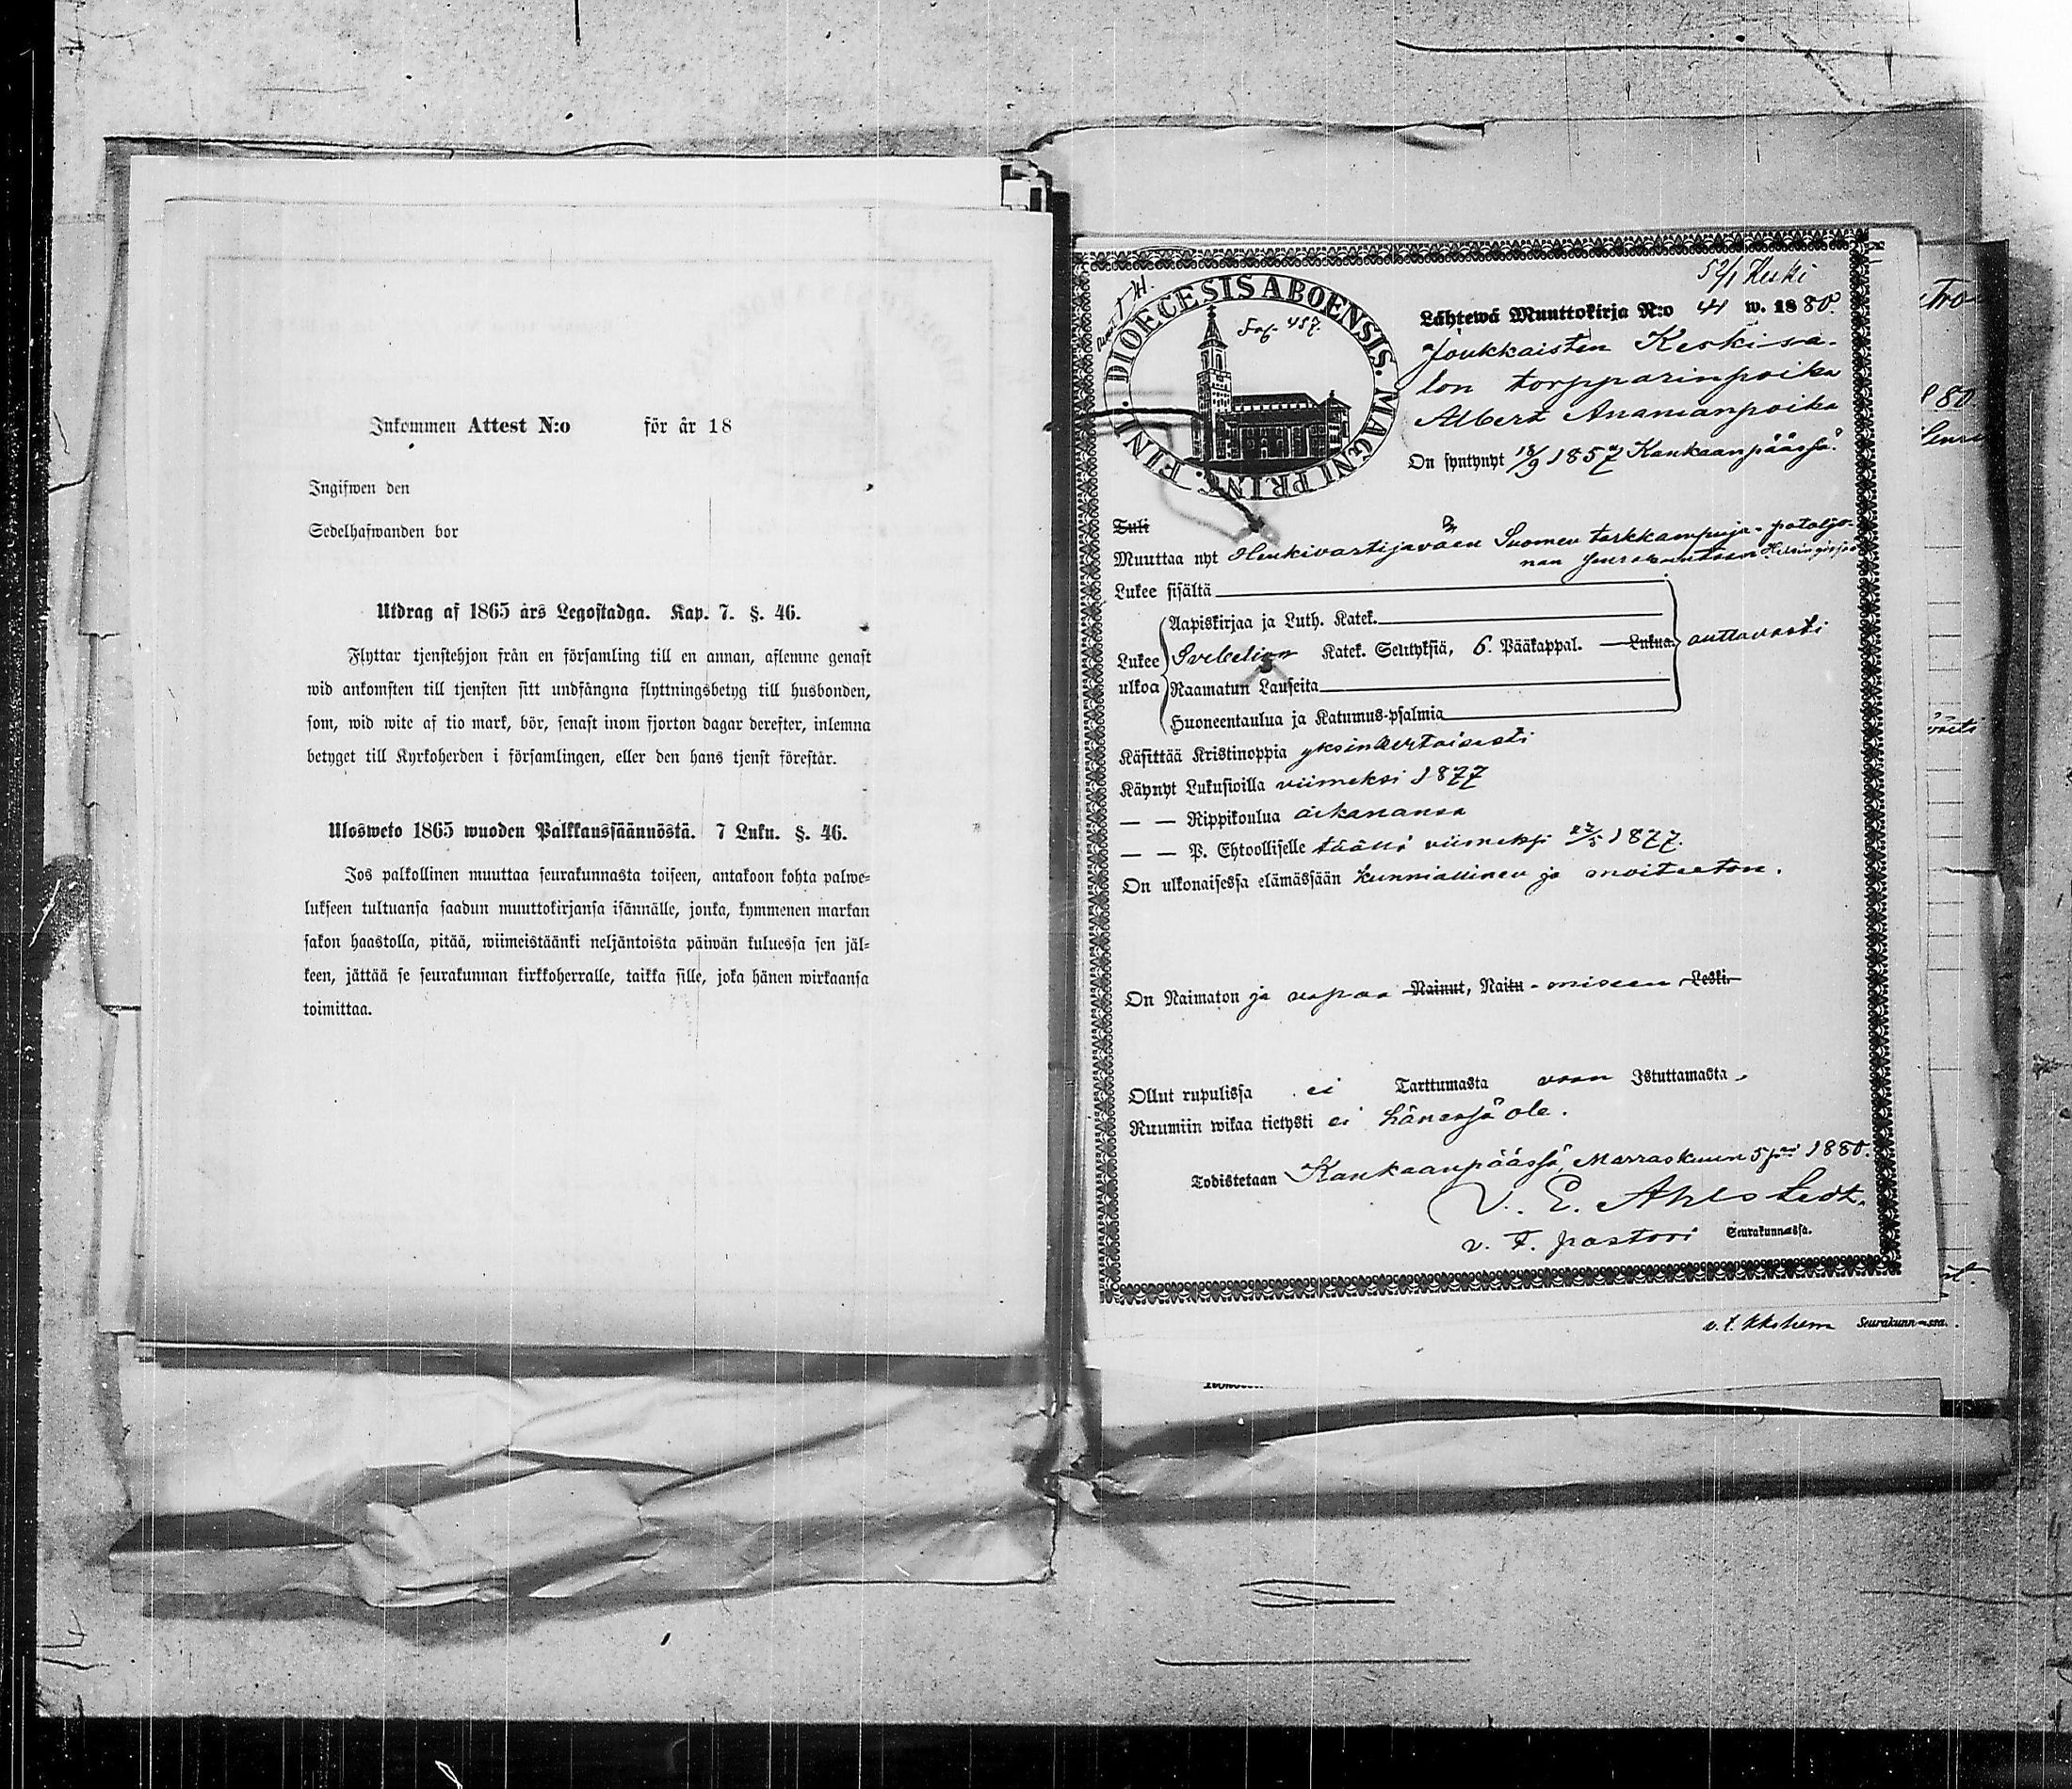 Inkommen Attest N:o för år 18
Ingifwen den
Sedelhafwanden bor
Utdrag af 1865 års Legostadga. Kap. 7. §. 46.
Flyttar tjenstehjon från en församling till en annan, aflemne genast
wid ankomsten till tjensten sitt undfångna flyttningsbetyg till husbonden,
som, wid wite af tio mark, bör, senast inom fjorton dagar derefter, inlemna
betyget till Kyrkoherden i församlingen, eller den hans tjenst förestår.
Ulosweto 1865 wuoden Palkkaussäännöstä. 7 Luku. §. 46.
Jos palkollinen muuttaa seurakunnasta toiseen, antakoon kohta palwe=
lukseen tultuansa saadun muuttokirjansa isännälle, jonka, kymmenen markan
sakon haastolla, pitää, wiimeistäänki neljäntoista päiwän kuluessa sen jäl=
keen, jättää se seurakunnan kirkkoherralle, taikka sille, joka hänen wirkaansa
toimittaa.
DIOECESIS ABOENSIS. MAGNI PRINC. FINL.
457.
Lähtewä Muuttokirja N:o 44 w. 1880.
Joukkaisten Keskisa-
lon torpparinpoika
Albert Ananianpoika
On syntynyt 18/9 1857 Kankaanpäässä.
Tuli
Muuttaa nyt Henkivartijaväen 3 Suomen tarkkampuja-pataljo-
nan seurakuntaan Helsingissä
Lukee sisältä
Aapiskirjaa ja Luth. Katek.
Lukee Svebelion Katek. Selityksiä, 6. Pääkappal. Lukua. auttavasti
ulkoa Raamatun Lauseita
Huoneentaulua ja Katumus-psalmia
Käsittää Kristinoppia yksinkertaisesti
Käynyt Lukusioilla viimeksi 1877
— — Rippikoulua aikanansa
— — P. Ehtoolliselle täällä viimeksi 27/5 1877.
On ulkonaisessa elämässään kunniallinen ja moitteeton.
On Naimaton ja vapaa Nainut, Naitu - miseen Leski.
Ollut rupulissa ei Tarttumasta vaan Istuttamasta.
Ruumiin wikaa tietysti ei hänessä ole.
Todistetaan Kankaanpäässä, Marraskuun 5 p:nä 1880.
V. E. Ahlstedt.
v. t. pastori Seurakunnassa.
v. t. Seurakunnassa.